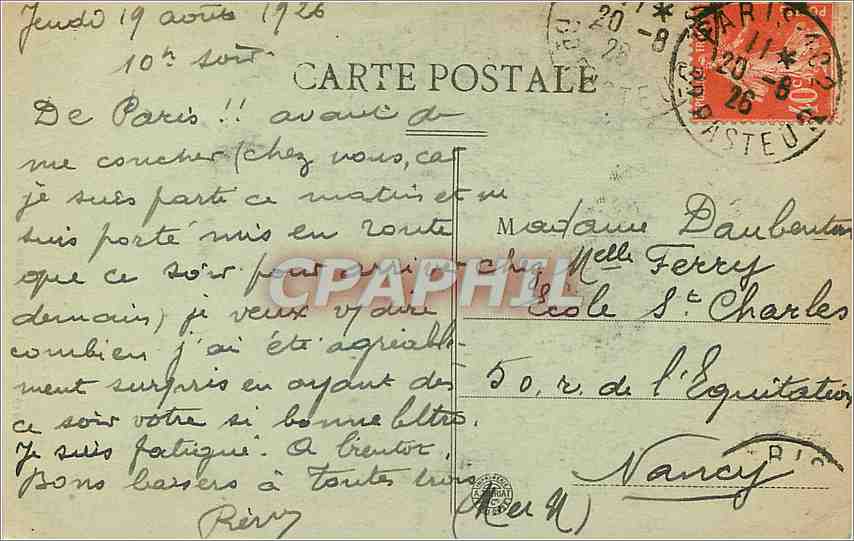 Jeudi 19 août 1926
10h soir
CARTE POSTALE
De Paris !! avant de
me coucher (chez nous, car
je suis parti ce matin et ne
suis porté mis en route
que ce soir pour arriver
demain) je veux v/dire
combien j'ai été agréable-
ment surpris en ayant dès
ce soir votre si bonne lettre.
Je suis fatigué. A bientôt.
Bons baisers à toutes trois
Rémy
Madame Daubenton
chez Melle Ferry
École St. Charles
50, r. de l'Équitation
Nancy
(M et M)
PARIS
11 *
20 -8
26
PASTEUR
11 *
20 -8
26
CPAPHIL